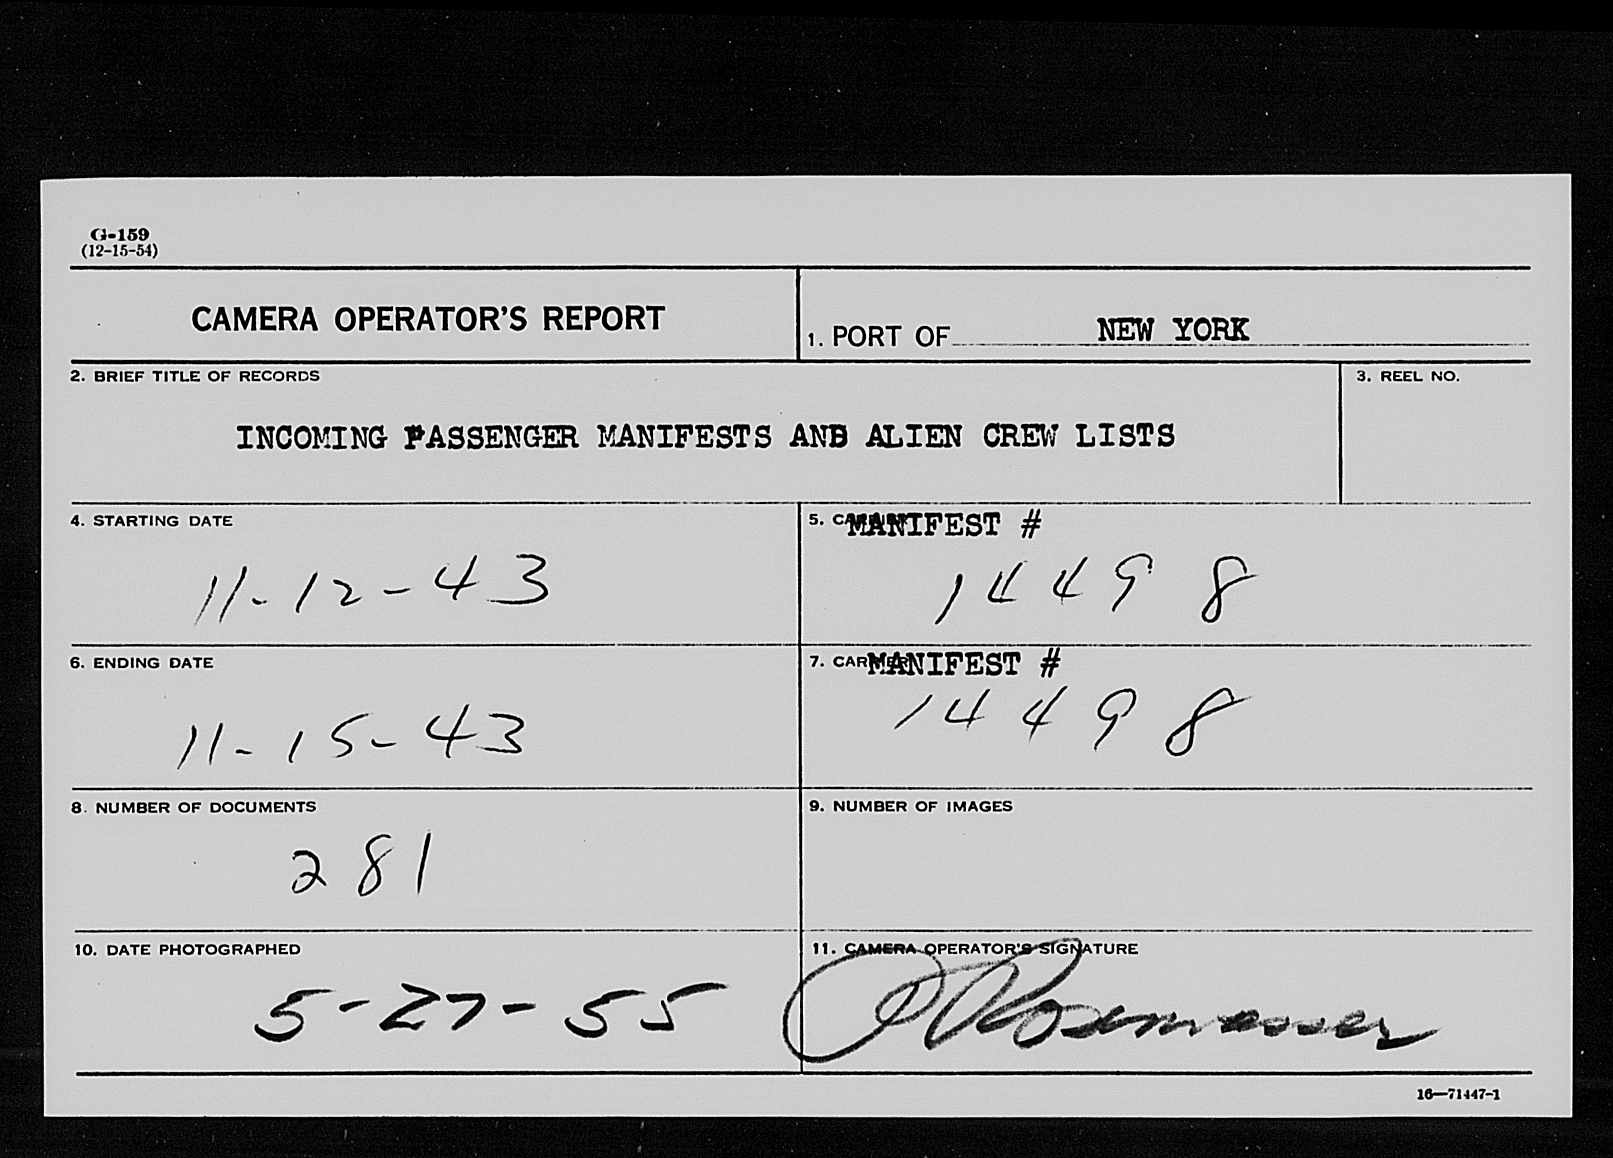 G-159
(12-15-54)
CAMERA OPERATOR'S REPORT
1. PORT OF NEW YORK
2. BRIEF TITLE OF RECORDS
3. REEL NO.
INCOMING PASSENGER MANIFESTS AND ALIEN CREW LISTS
4. STARTING DATE
5. CARRIER MANIFEST #
11-12-43
14498
6. ENDING DATE
7. CARRIER MANIFEST #
11-15-43
14498
8. NUMBER OF DOCUMENTS
9. NUMBER OF IMAGES
281
10. DATE PHOTOGRAPHED
11. CAMERA OPERATOR'S SIGNATURE
5-27-55
16—71447-1